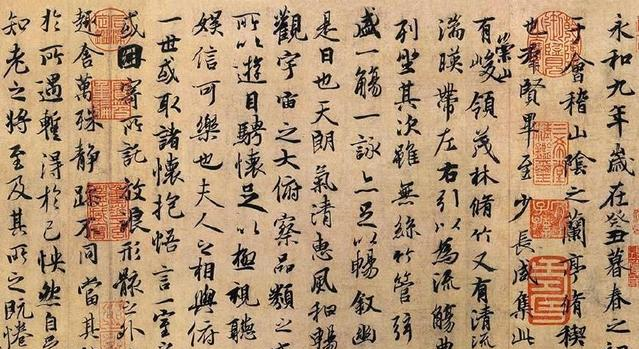 永和九年歲在癸丑暮春之初
于會稽山陰之蘭亭脩稧
也羣賢畢至少長咸集此
崇山
有峻領茂林脩竹又有清流
湍暎帶左右引以為流觴曲
列坐其次雖無絲竹管弦
盛一觴一詠亦足以暢叙幽
是日也天朗氣清惠風和暢
觀宇宙之大俯察品類之
所以遊目騁懷足以極視聽
娛信可樂也夫人之相與俯
一世或取諸懷抱悟言一室
或因寄所託放浪形骸之外
趣舍萬殊静躁不同當其
於所遇暫得於己怏然自
知老之將至及其所之既惓